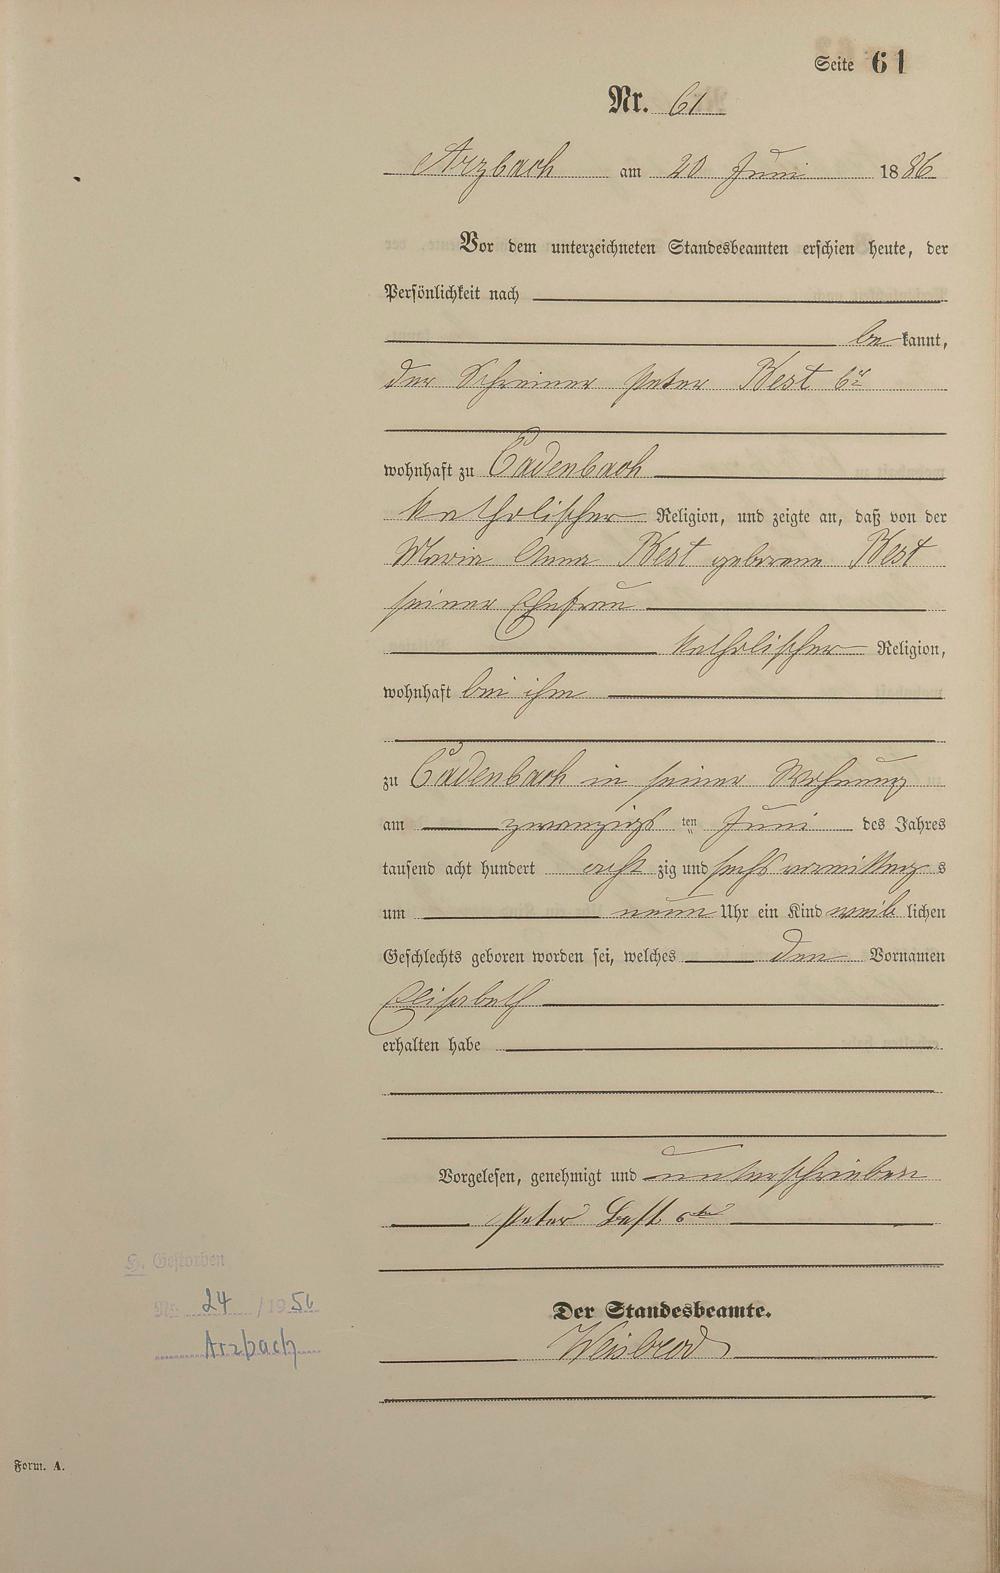 Seite 61
Nr. 61
Arzbach am 20 Juni 1886
Vor dem unterzeichneten Standesbeamten erschien heute, der
Persönlichkeit nach
be kannt,
der Schreiner Peter Best 6r
wohnhaft zu Cadenbach
katholischer Religion, und zeigte an, daß von der
Maria Anna Best geborene Best
seiner Ehefrau
katholischer Religion,
wohnhaft bei ihm
zu Cadenbach in seiner Wohnung
am zwanzigs ten Juni des Jahres
tausend acht hundert acht zig und sechs vormittag s
um neun Uhr ein Kind weib lichen
Geschlechts geboren worden sei, welches den Vornamen
Elisabeth
erhalten habe
Vorgelesen, genehmigt und unterschrieben
Peter Best 6te
H. Gestorben
Nr. 24 / 1956
Arzbach
Der Standesbeamte.
Weisbrod
Form. A.